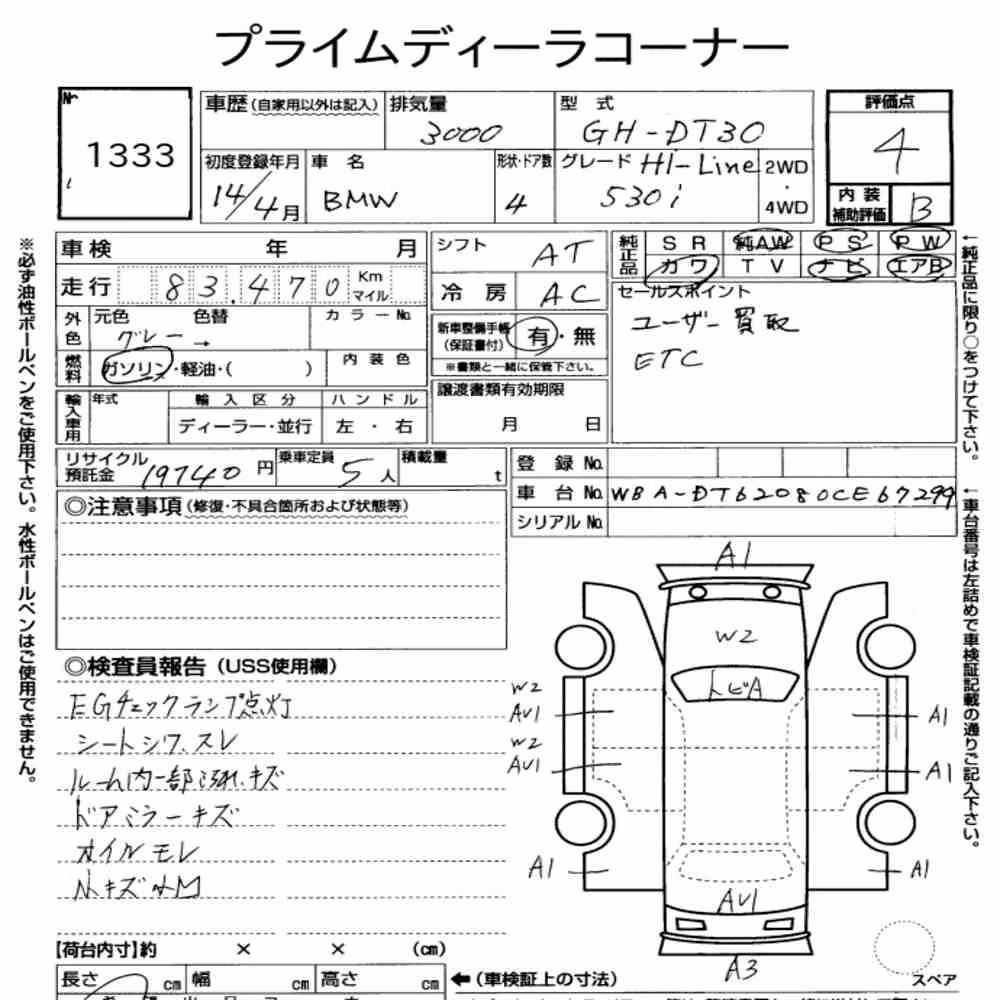 プライムディーラコーナー
№
1333
車歴(自家用以外は記入)
排気量
3000
型 式
GH-DT30
評価点
4
初度登録年月
14/4月
車 名
BMW
形状・ドア数
4
グレード HI-Line
530i
2WD
・
4WD
内装
補助評価
B
車検 年 月
シフト
AT
純正品
SR 純AW PS PW
カワ TV ナビ エアB
走行 83.470 Km
マイル
冷 房
AC
セールスポイント
ユーザー買取
ETC
外色
元色 色替 カラーNo.
グレー →
新車整備手帳
(保証書付)
有・無
※書類と一緒に保管下さい。
燃料
ガソリン・軽油・( )
内装色
譲渡書類有効期限
月 日
輸入車用
年式
輸入区分
ハンドル
ディーラー・並行
左・右
リサイクル
預託金
19740円
乗車定員
5人
積載量
t
登 録 No.
車 台 No. WBA-DT62080CE67299
シリアル No.
◎注意事項(修復・不具合箇所および状態等)
◎検査員報告(USS使用欄)
EGチェックランプ点灯
シートシワ、スレ
ルーム内一部汚れ、キズ
ドアミラーキズ
オイルモレ
小キズ小凹
A1
W2
トビA
W2
AU1
W2
AU1
A1
A1
A1
A1
AU1
A3
スペア
【荷台内寸】約 × × (cm)
長さ cm 幅 cm 高さ cm
←(車検証上の寸法)
※必ず油性ボールペンをご使用下さい。水性ボールペンはご使用できません。
←純正品に限り○をつけて下さい。
←車台番号は左詰めで車検証記載の通りご記入下さい。